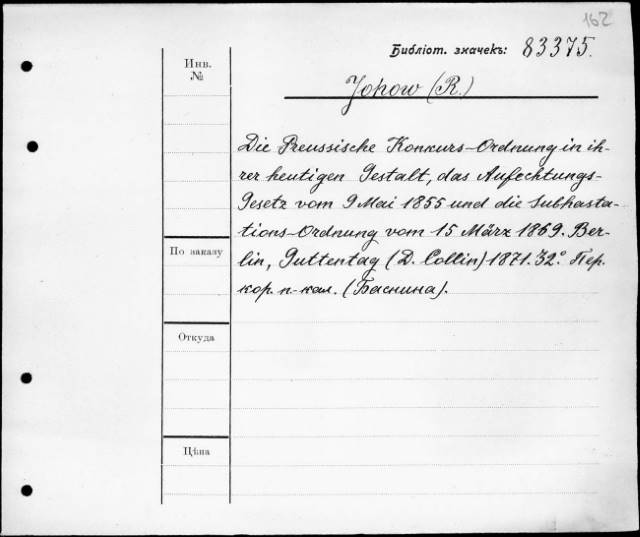 162
Библіот. значекъ: 83375.
Инв.
№
Johow (R.)
Die Preussische Konkurs-Ordnung in ih-
rer heutigen Gestalt, das Aufechtungs-
Gesetz vom 9 Mai 1855 und die Subhasta-
tions-Ordnung vom 15 März 1869. Ber-
По заказу
lin, Guttentag (D. Collin) 1871. 32°. Пер.
кор. п-кал. (Баснина).
Откуда
Цѣна